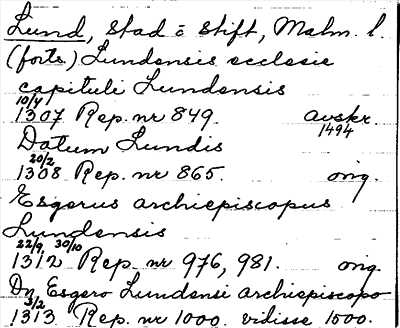 Lund, Stad o Stift, Malm. l.
(forts.) Lundensis ecclesie
capituli Lundensis
10/4
1307 Rep. nr 849. avskr.
1494
Datum Lundis
20/2
1308 Rep. nr 865. orig.
Esgerus archiepiscopus
Lundensis
22/9 30/10
1312 Rep. nr 976, 981. orig.
Dn Esgero Lundensi archiepiscopo
3/2
1313 Rep. nr 1000. vidisse 1500.